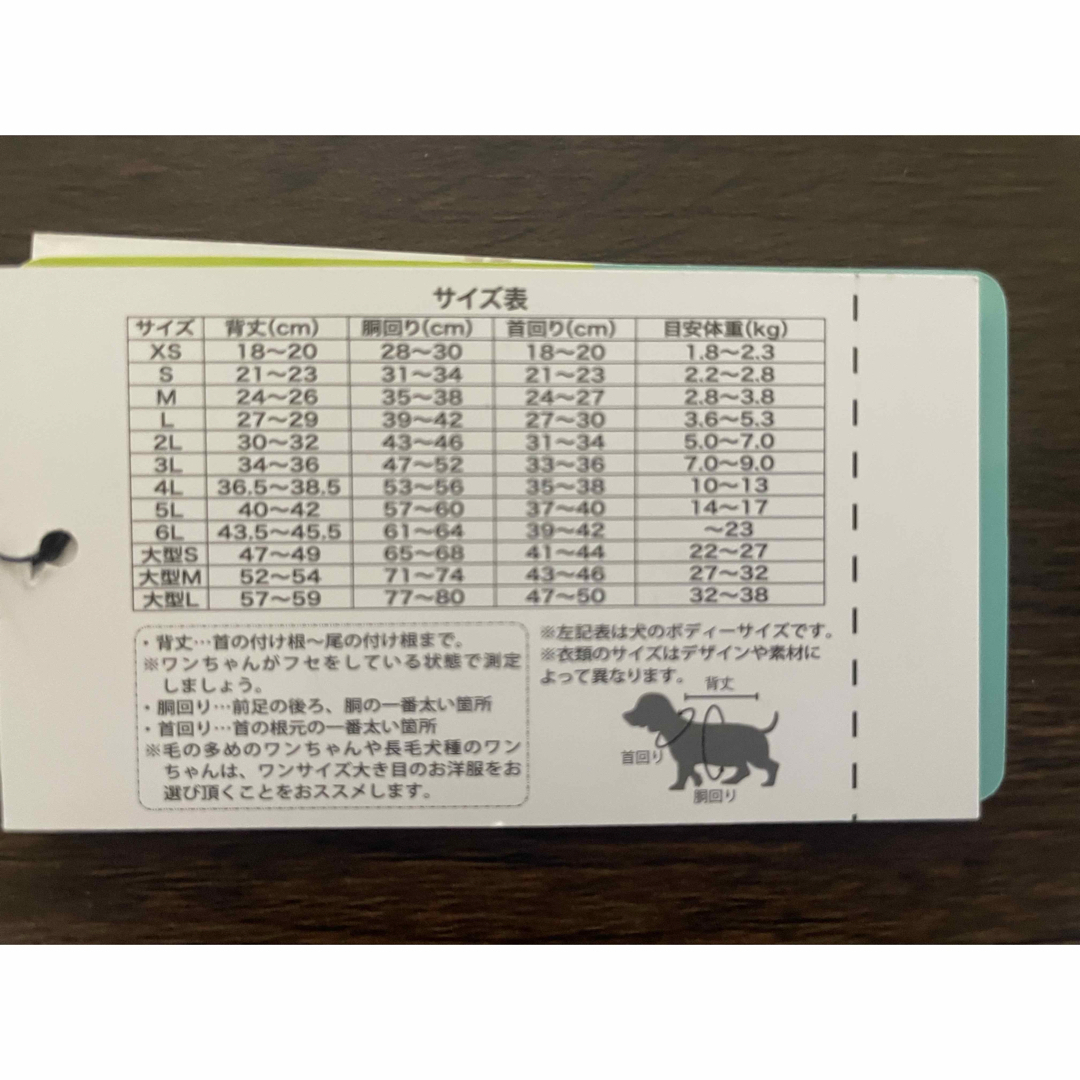 サイズ表
サイズ 背丈(cm) 胴回り(cm) 首回り(cm) 目安体重(kg)
XS 18〜20 28〜30 18〜20 1.8〜2.3
S 21〜23 31〜34 21〜23 2.2〜2.8
M 24〜26 35〜38 24〜27 2.8〜3.8
L 27〜29 39〜42 27〜30 3.6〜5.3
2L 30〜32 43〜46 31〜34 5.0〜7.0
3L 34〜36 47〜52 33〜36 7.0〜9.0
4L 36.5〜38.5 53〜56 35〜38 10〜13
5L 40〜42 57〜60 37〜40 14〜17
6L 43.5〜45.5 61〜64 39〜42 〜23
大型S 47〜49 65〜68 41〜44 22〜27
大型M 52〜54 71〜74 43〜46 27〜32
大型L 57〜59 77〜80 47〜50 32〜38
・背丈…首の付け根〜尾の付け根まで。
※ワンちゃんがフセをしている状態で測定
しましょう。
・胴回り…前足の後ろ、胴の一番太い箇所
・首回り…首の根元の一番太い箇所
※毛の多めのワンちゃんや長毛犬種のワン
ちゃんは、ワンサイズ大き目のお洋服をお
選び頂くことをおススメします。
※左記表は犬のボディーサイズです。
※衣類のサイズはデザインや素材に
よって異なります。
背丈
首回り
胴回り